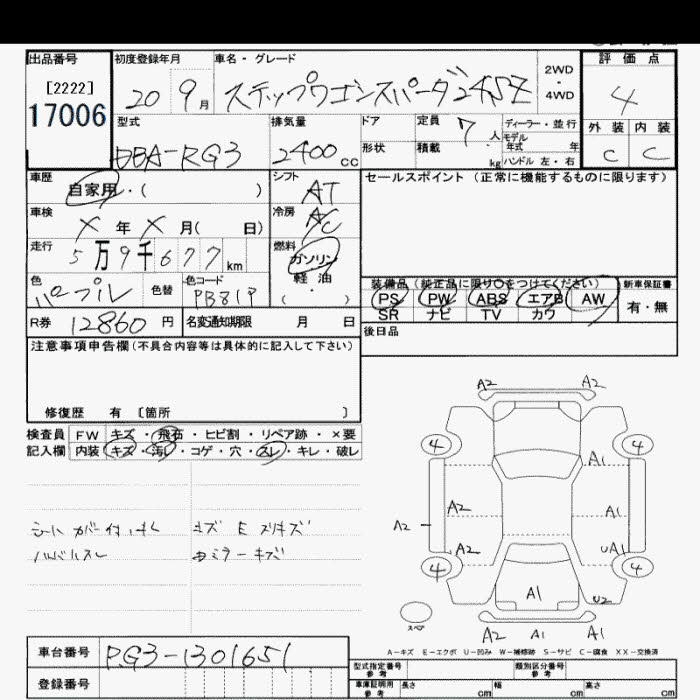 出品番号 初度登録年月 車名・グレード 2WD ・ 4WD 評価点
[2222]
17006
20 9月 ステップワゴンスパーダ24SZ 4
型式 排気量 ドア 定員 7人 ディーラー・並行 外装 内装
モデル年式 年
DBA-RG3 2400cc 形状 積載 kg ハンドル 左・右 C C
車歴 シフト セールスポイント (正常に機能するものに限ります)
自家用・( ) AT
車検 冷房
X年X月( 日) A/C
走行 燃料
5万9千677km ガソリン
色 色替 色コード 軽油 装備品 (純正品に限り○をつけてください) 新車保証書
パープル PB81P (・) PS PW ABS エアB AW 有・無
SR ナビ TV カワ
R券 12860円 名変通知期限 月 日
後日品
注意事項申告欄(不具合内容等は具体的に記入して下さい)
修復歴 有 〔箇所 〕
検査員 FW キズ・飛石・ヒビ割・リペア跡・×要
記入欄 内装 キズ・汚れ・コゲ・穴・スレ・キレ・破レ
A2 A2
4 4
A1
A2 A1
A2
A2 UA1
4 4
A1 U2
スペア
A2 A1 A2
キズ E スリキズ
ミラーキズ
A-キズ E-エクボ U-凹み W-補修跡 S-サビ C-腐食 XX-交換済
車台番号 RG3-1301651
登録番号
型式指定番号 参考 類別区分番号 参考
車庫証明用 参考 長さ cm 幅 cm 高さ cm